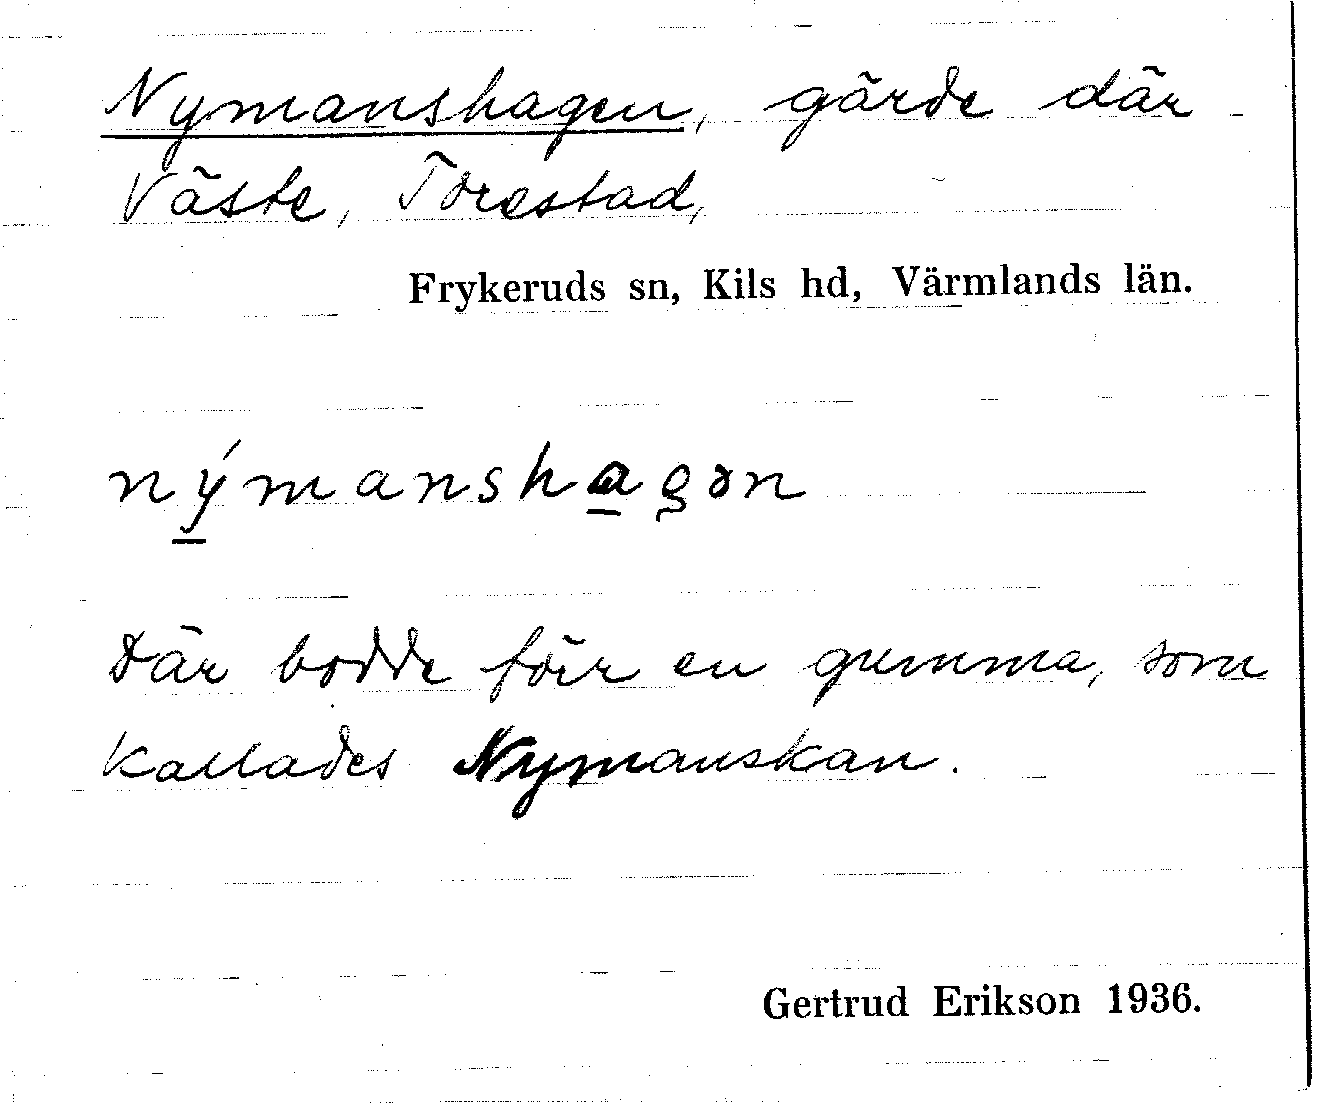 Nymanshagen, gärde där
Väste, Torestad,
Frykeruds sn, Kils hd, Värmlands län.
nýmanshagən
Där bodde förr en gumma, som
kallades Nymanskan.
Gertrud Erikson 1936.